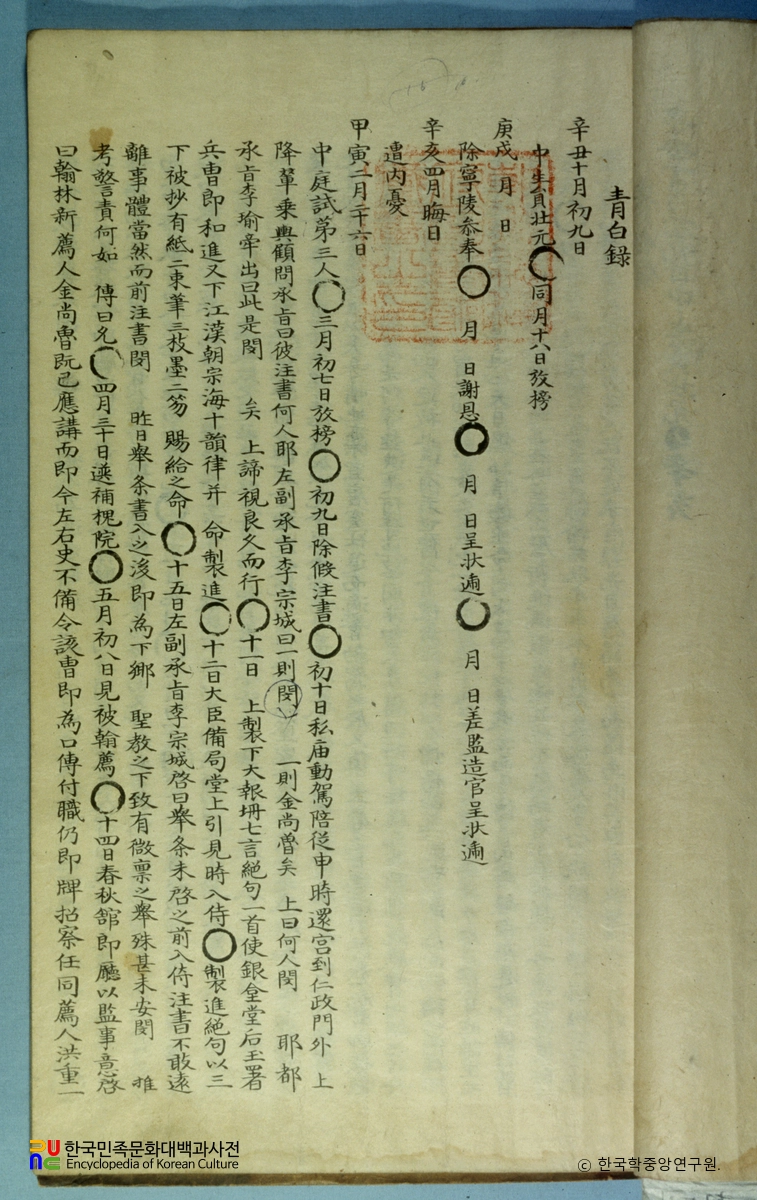 青白録
辛丑十月初九日
中生員壮元○同月十八日放榜
庚戌 月 日
除寧陵叅奉○ 月 日謝恩○ 月 日呈状遞○ 月 日差監造官呈状遞
辛亥四月晦日
遭内憂
甲寅二月二十六日
中庭試第三人○三月初七日放榜○初九日除假注書○初十日私庙動駕陪従申時還宮到仁政門外 上
降輦乗輿顧問承旨曰彼注書何人耶左副承旨李宗城曰一則閔 一則金尚魯矣 上曰何人閔 耶都
承旨李瑜牵出曰此是閔 矣 上諦視良久而行○十一日 上製下大報坍七言絶句一首使銀坮堂后玉署
兵曺即和進又下江漢朝宗海十韻律并 命製進○十二日大臣備局堂上引見時入侍○製進絶句以三
下被抄有紙二束筆三枝墨二笏 賜給之命○十五日左副承旨李宗城啓曰擧条未啓之前入侍注書不敢遠
離事體當然而前注書閔 昨日擧条書入之後即為下郷 聖教之下致有微禀之擧殊甚未安閔 推
考警責何如 傳曰允○四月三十日選補槐院○五月初八日見被翰薦○十四日春秋舘郎廳以監事意啓
曰翰林新薦人金尚魯既已應講而即今左右史不備令該曺即為口傳付職仍即牌招察任同薦人洪重一
한국민족문화대백과사전
Encyclopedia of Korean Culture
ⓒ 한국학중앙연구원.